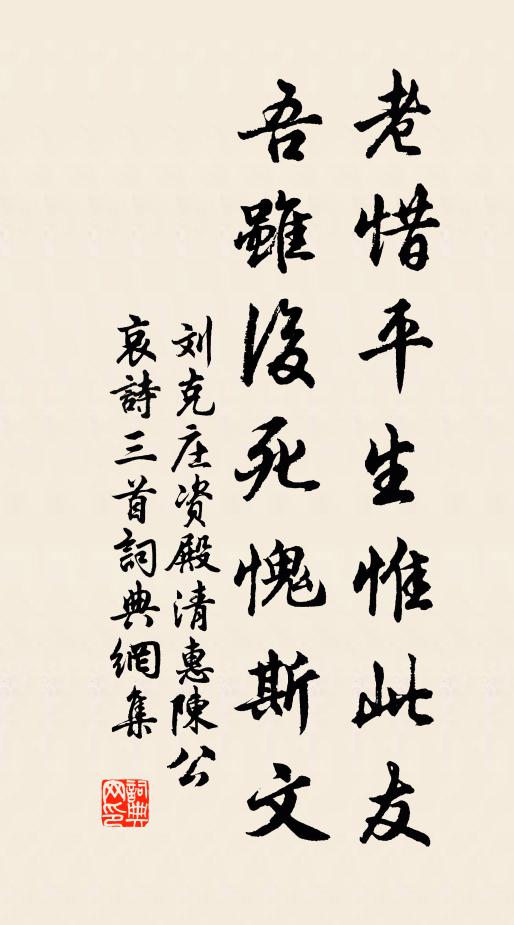 老惜平生惟此友
吾雖後死愧斯文
刘克庄资殿清惠陳公
哀詩三首詞典網集
詞典
网印